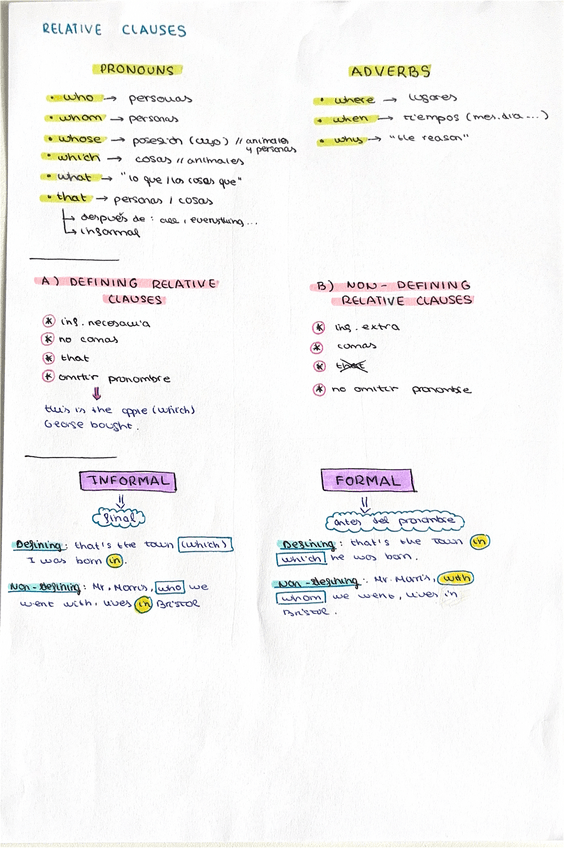 RELATIVE CLAUSES
PRONOUNS
• who → personas
• whom → personas
• whose → posesión (cuyo) // animales y personas
• which → cosas // animales
• what → "lo que / las cosas que"
• that → personas / cosas
↳ después de: all, everything...
↳ informal
ADVERBS
• where → lugares
• when → tiempos (mes, día...)
• why → "the reason"
A) DEFINING RELATIVE
CLAUSES
* inf. necesaria
* no comas
* that
* omitir pronombre
this is the apple (which)
George bought.
B) NON-DEFINING
RELATIVE CLAUSES
* inf. extra
* comas
* that
* no omitir pronombre
INFORMAL
final
Defining: that's the town (which)
I was born in.
Non-defining: Mr. Morris, who we
went with, lives in BRISTOL
FORMAL
antes del pronombre
Defining: that's the town in
which he was born.
Non-defining: Mr. Morris, with
whom we went, lives in
BRISTOL.